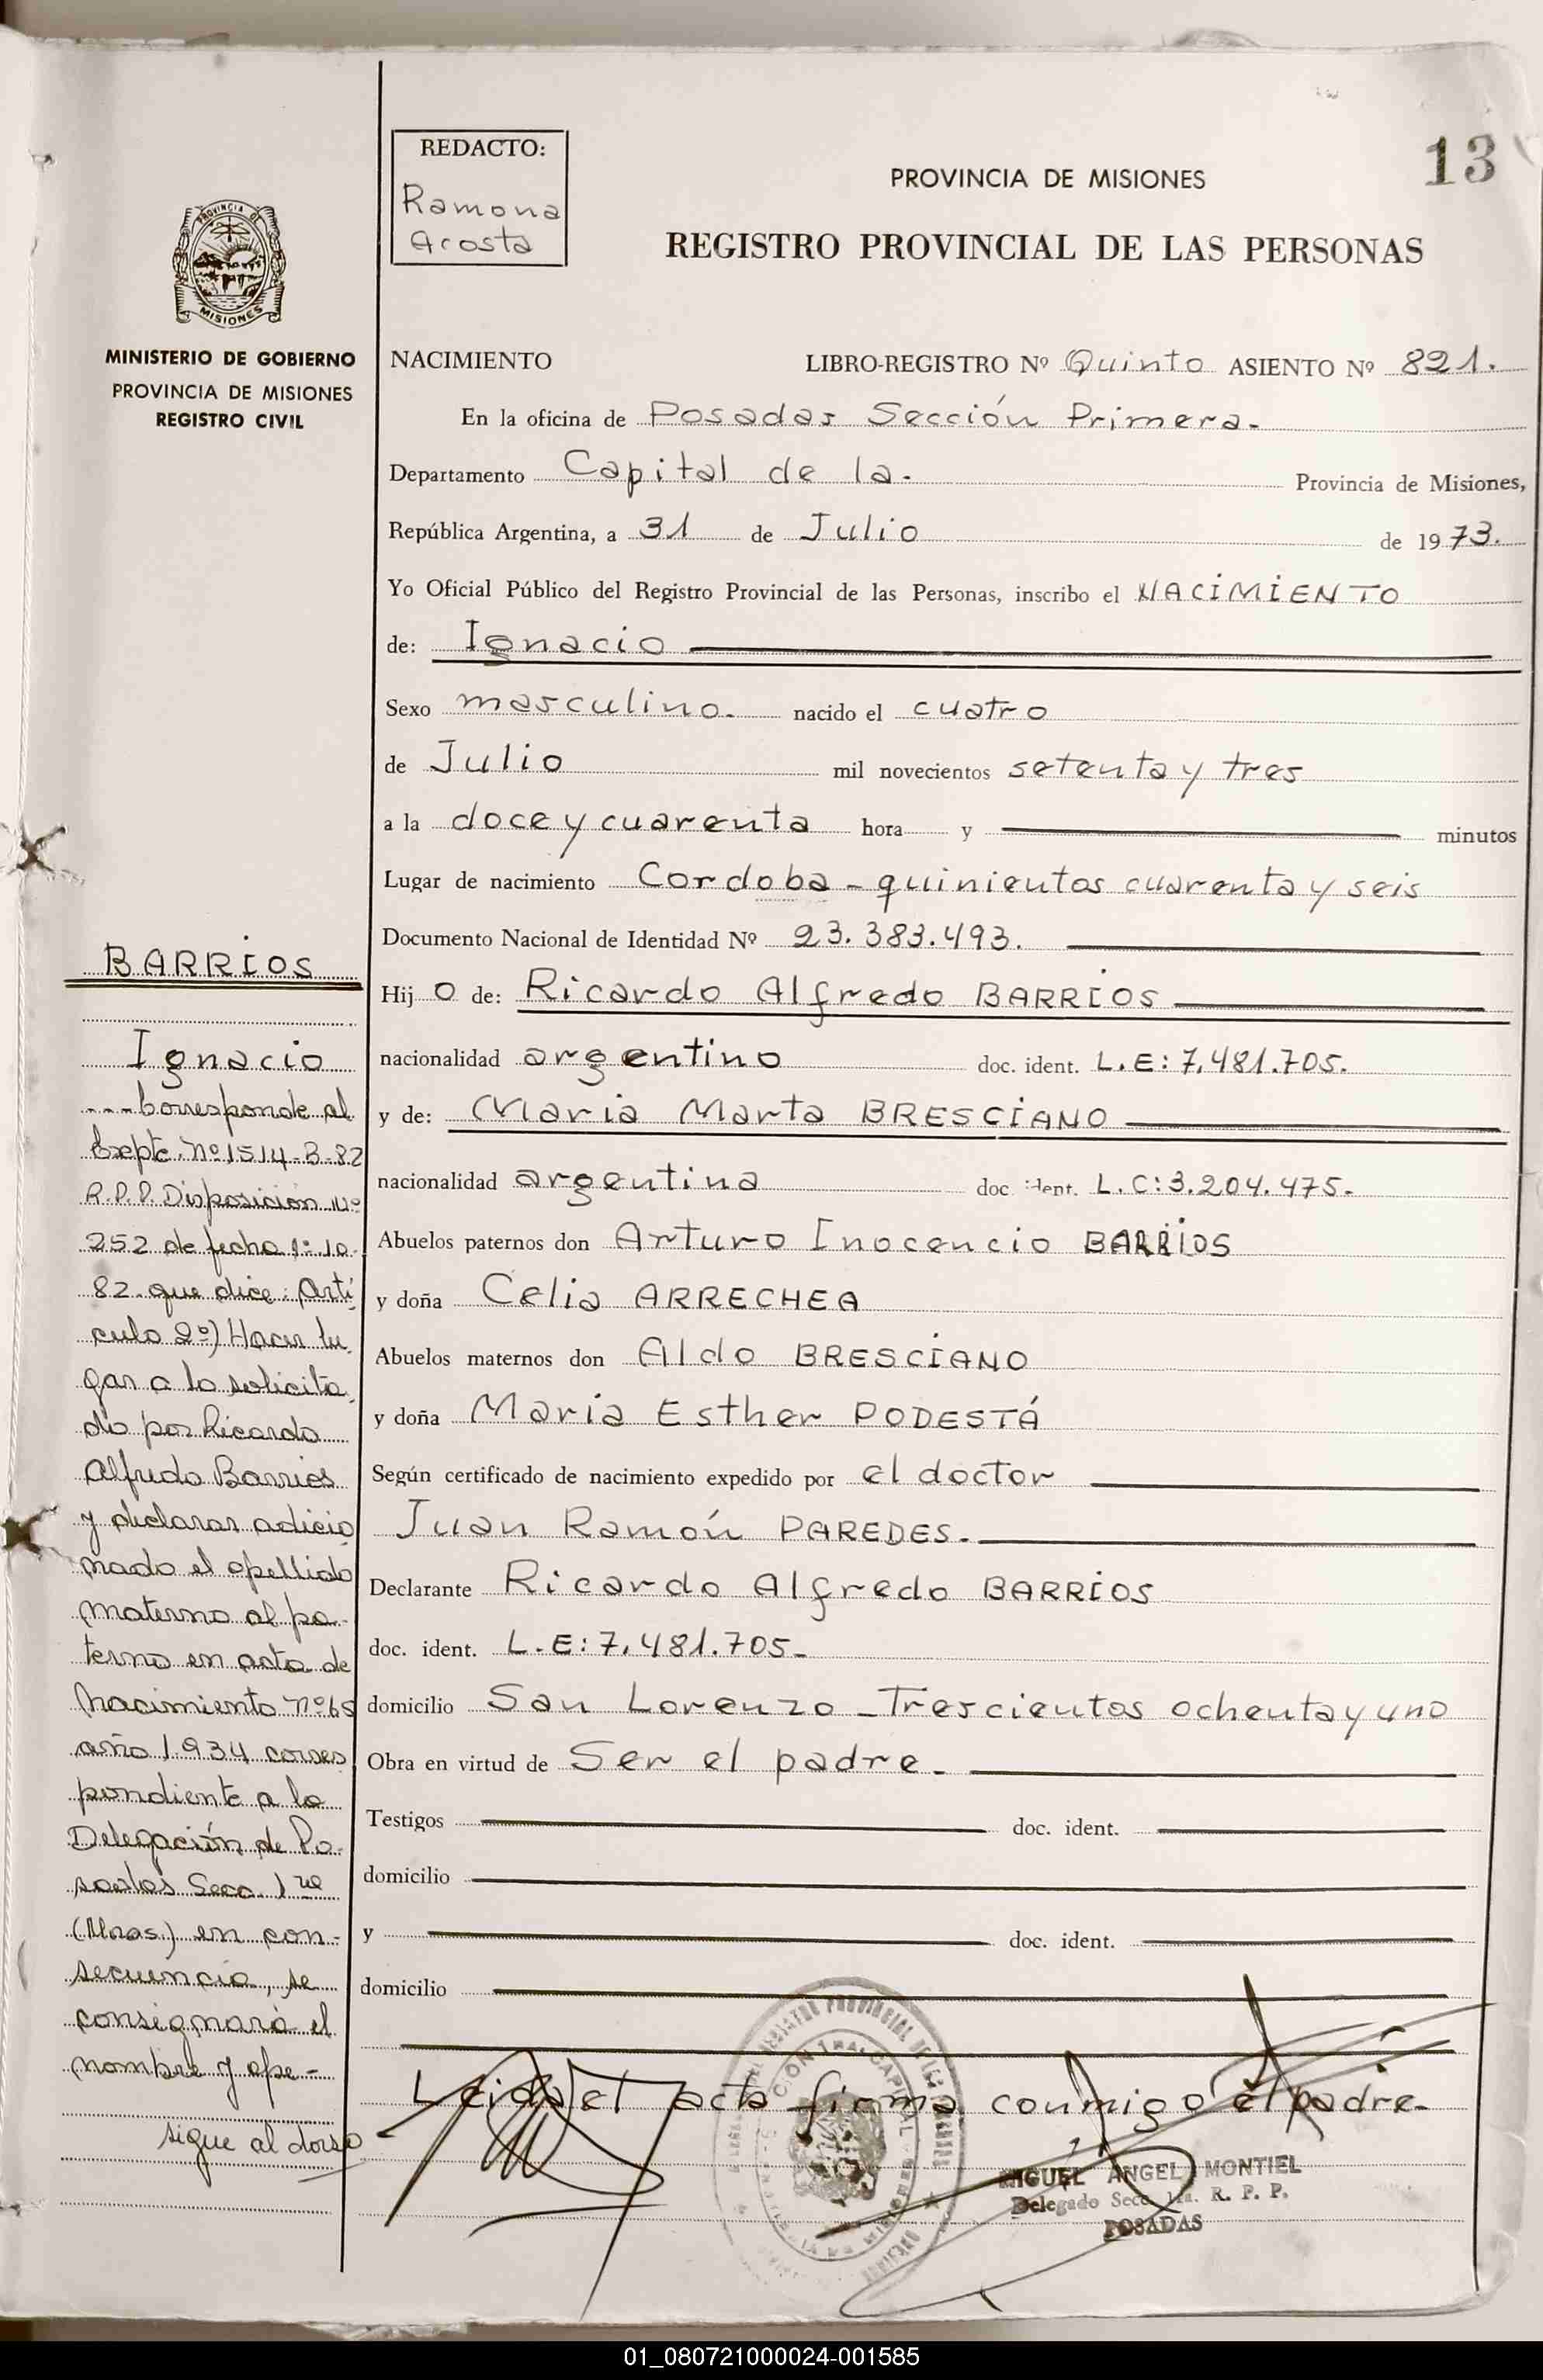 13
REDACTO:
Ramona
Acosta
PROVINCIA DE MISIONES
REGISTRO PROVINCIAL DE LAS PERSONAS
PROVINCIA DE
MISIONES
MINISTERIO DE GOBIERNO
PROVINCIA DE MISIONES
REGISTRO CIVIL
NACIMIENTO LIBRO-REGISTRO Nº Quinto ASIENTO Nº 821.
En la oficina de Posadas Sección Primera.
Departamento Capital de la. Provincia de Misiones,
República Argentina, a 31 de Julio de 1973.
Yo Oficial Público del Registro Provincial de las Personas, inscribo el NACIMIENTO
de: Ignacio
Sexo masculino. nacido el cuatro
de Julio mil novecientos setenta y tres
a la doce y cuarenta hora y minutos
Lugar de nacimiento Cordoba - quinientos cuarenta y seis
Documento Nacional de Identidad Nº 23.383.493.
Hij o de: Ricardo Alfredo BARRIOS
nacionalidad argentino doc. ident. L.E: 7.481.705.
y de: Maria Marta BRESCIANO
nacionalidad argentina doc. ident. L.C: 3.204.475.
Abuelos paternos don Arturo Inocencio BARRIOS
y doña Celia ARRECHEA
Abuelos maternos don Aldo BRESCIANO
y doña Maria Esther PODESTÁ
Según certificado de nacimiento expedido por el doctor
Juan Ramón PAREDES.
Declarante Ricardo Alfredo BARRIOS
doc. ident. L.E: 7.481.705.
domicilio San Lorenzo - Trescientos ochenta y uno
Obra en virtud de Ser el padre.
Testigos doc. ident.
domicilio
y doc. ident.
domicilio
Leida el acta firma conmigo el padre.
MIGUEL ANGEL MONTIEL
Delegado Secc. 1ra. R. P. P.
POSADAS
BARRIOS
Ignacio
---Corresponde al
Expte. Nº 1514-B-82
R.P.P. Disposición Nº
252 de fecha 1º-10-
82 que dice: Artí
culo 2º) Hacer lu
gar a lo solicita
do por Ricardo
Alfredo Barrios
y declarar adicio
nado el apellido
materno al pa-
terno en acta de
Nacimiento Nº 65
año 1934 corres
pondiente a la
Delegación de Po-
sadas Secc. 1ra
(Mnes.) en con-
secuencia, se
consignará el
nombre y ape-
sigue al dorso
01_080721000024-001585